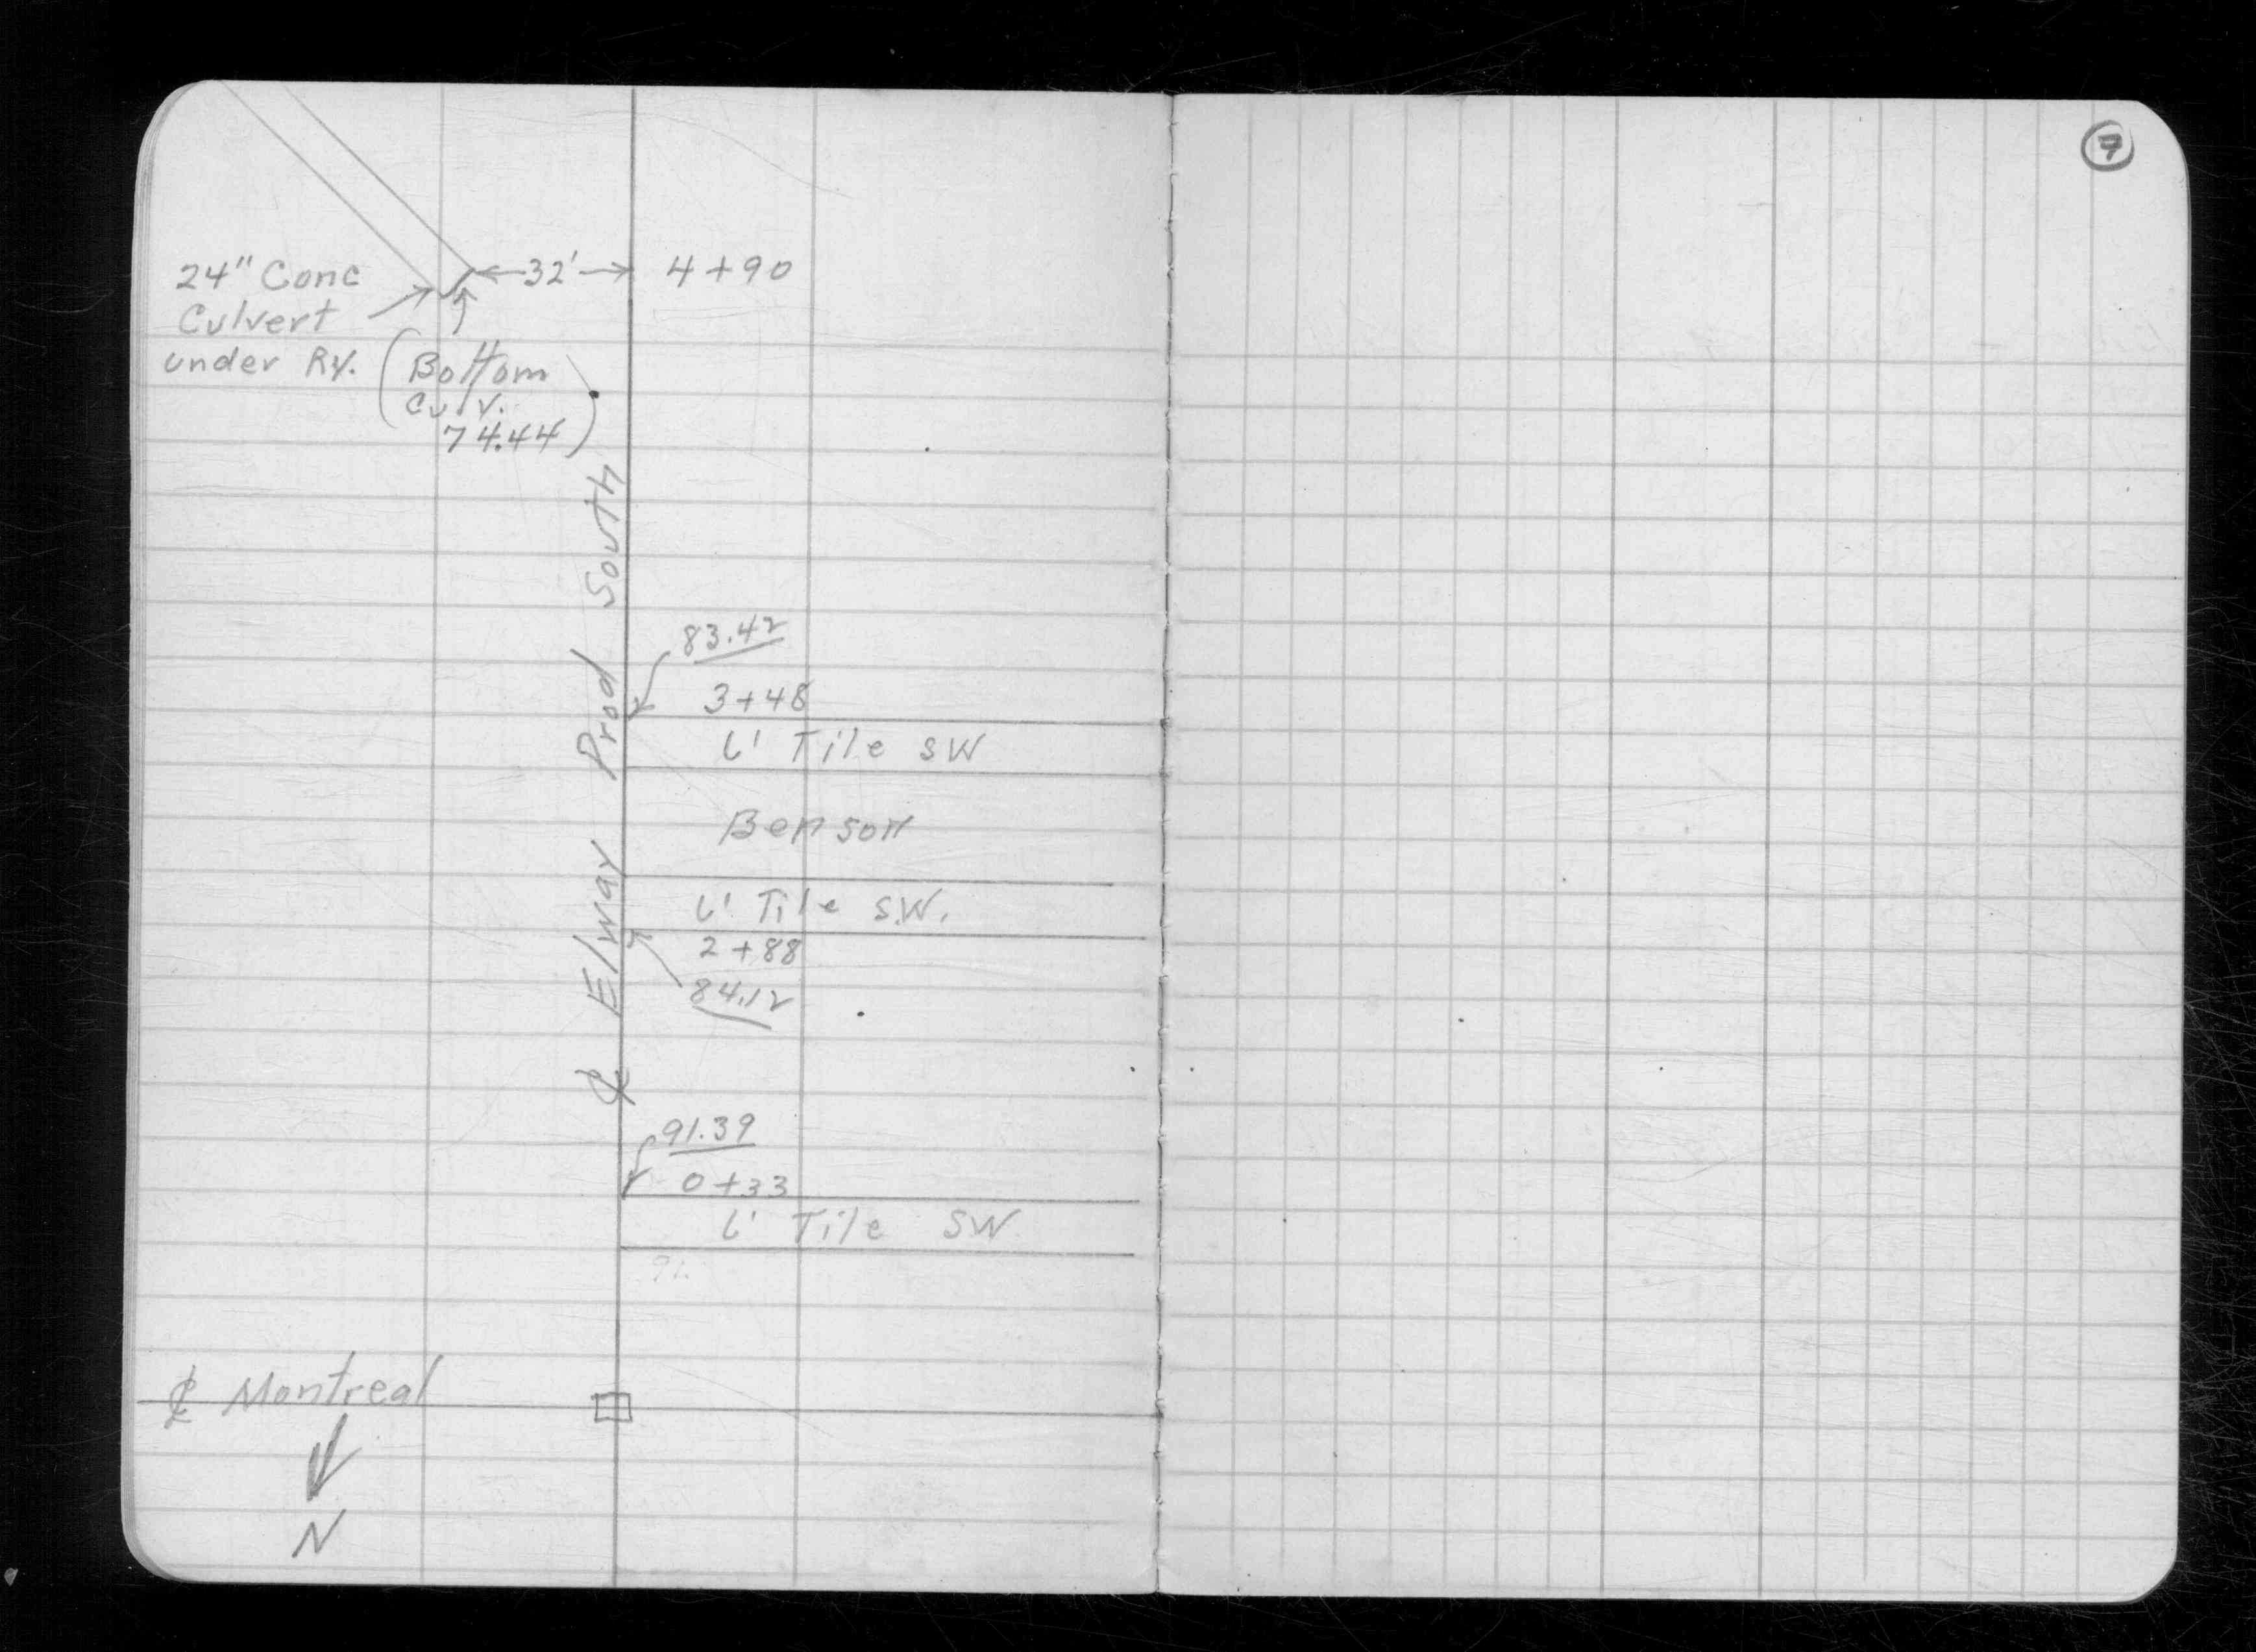 7
24" Conc
Culvert
under Ry.
←32'→ 4+90
(Bottom
Culv.
74.44)
℄ Elway Prod South
83.42
3+48
6' Tile SW
Benson
6' Tile S.W.
2+88
84.12
91.39
0+33
6' Tile SW
91.
℄ Montreal
N